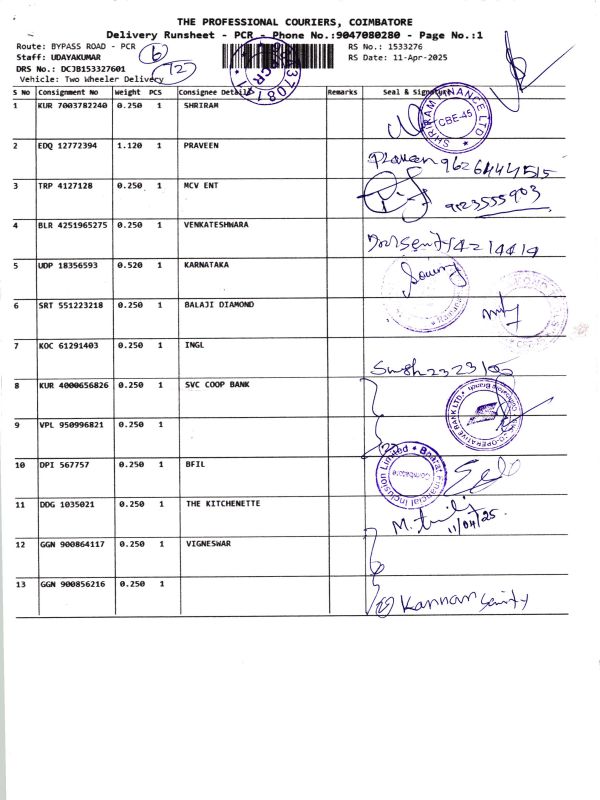 THE PROFESSIONAL COURIERS, COIMBATORE
Delivery Runsheet - PCR - Phone No.:9047080280 - Page No.:1
Route: BYPASS ROAD - PCR
RS No.: 1533276
Staff: UDAYAKUMAR
RS Date: 11-Apr-2025
DRS No.: DCJB153327601
Vehicle: Two Wheeler Delivery
6
12
S No Consignment No Weight PCS Consignee Details Remarks Seal & Signature
1 KUR 7003782240 0.250 1 SHRIRAM
SHRIRAM FINANCE LTD
CBE-45
2 EDQ 12772394 1.120 1 PRAVEEN
Praveen 9626444515
3 TRP 4127128 0.250 1 MCV ENT
9123555903
4 BLR 4251965275 0.250 1 VENKATESHWARA
5 UDP 18356593 0.520 1 KARNATAKA
6 SRT 551223218 0.250 1 BALAJI DIAMOND
7 KOC 61291403 0.250 1 INGL
8 KUR 4000656826 0.250 1 SVC COOP BANK
CO-OPERATIVE BANK LTD.
9 VPL 950996821 0.250 1
10 DPI 567757 0.250 1 BFIL
Bharat Financial Inclusion Limited
Coimbatore
11 DDG 1035021 0.250 1 THE KITCHENETTE
11/04/25.
12 GGN 900864117 0.250 1 VIGNESWAR
13 GGN 900856216 0.250 1
Kannan